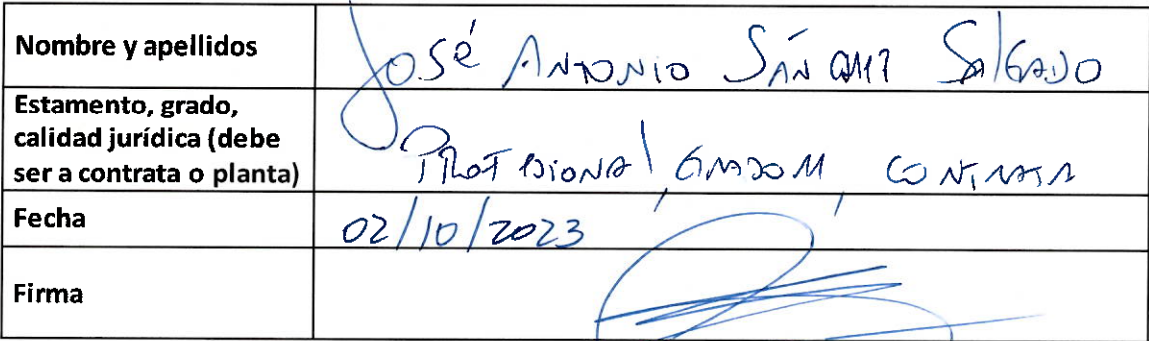 Nombre y apellidos
José Antonio Sánchez Salgado
Estamento, grado,
calidad jurídica (debe
ser a contrata o planta)
Profesional, Grado 11, Contrata
Fecha
02/10/2023
Firma